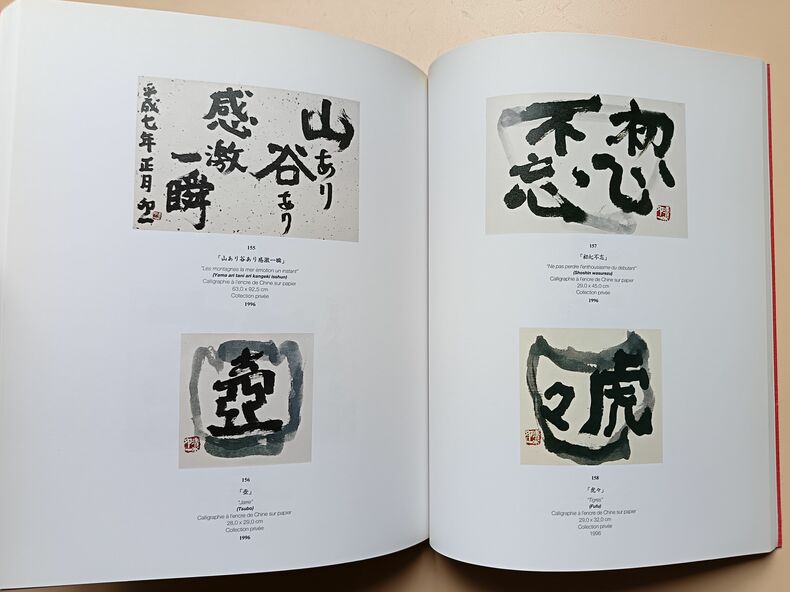 山あり
谷あり
感激
一瞬
平成七年 正月 卯一
155
「山あり谷あり感激一瞬」
"Les montagnes la mer émotion un instant"
(Yama ari tani ari kangeki isshun)
Calligraphie à l'encre de Chine sur papier
63,0 x 92,5 cm
Collection privée
1996
壺
156
「壺」
"Jarre"
(Tsubo)
Calligraphie à l'encre de Chine sur papier
28,0 x 29,0 cm
Collection privée
1996
初心
不忘
157
「初心不忘」
"Ne pas perdre l'enthousiasme du débutant"
(Shoshin wasurezu)
Calligraphie à l'encre de Chine sur papier
29,0 x 45,0 cm
Collection privée
1996
虎
々
158
「虎々」
"Tigres"
(Fufu)
Calligraphie à l'encre de Chine sur papier
29,0 x 32,0 cm
Collection privée
1996